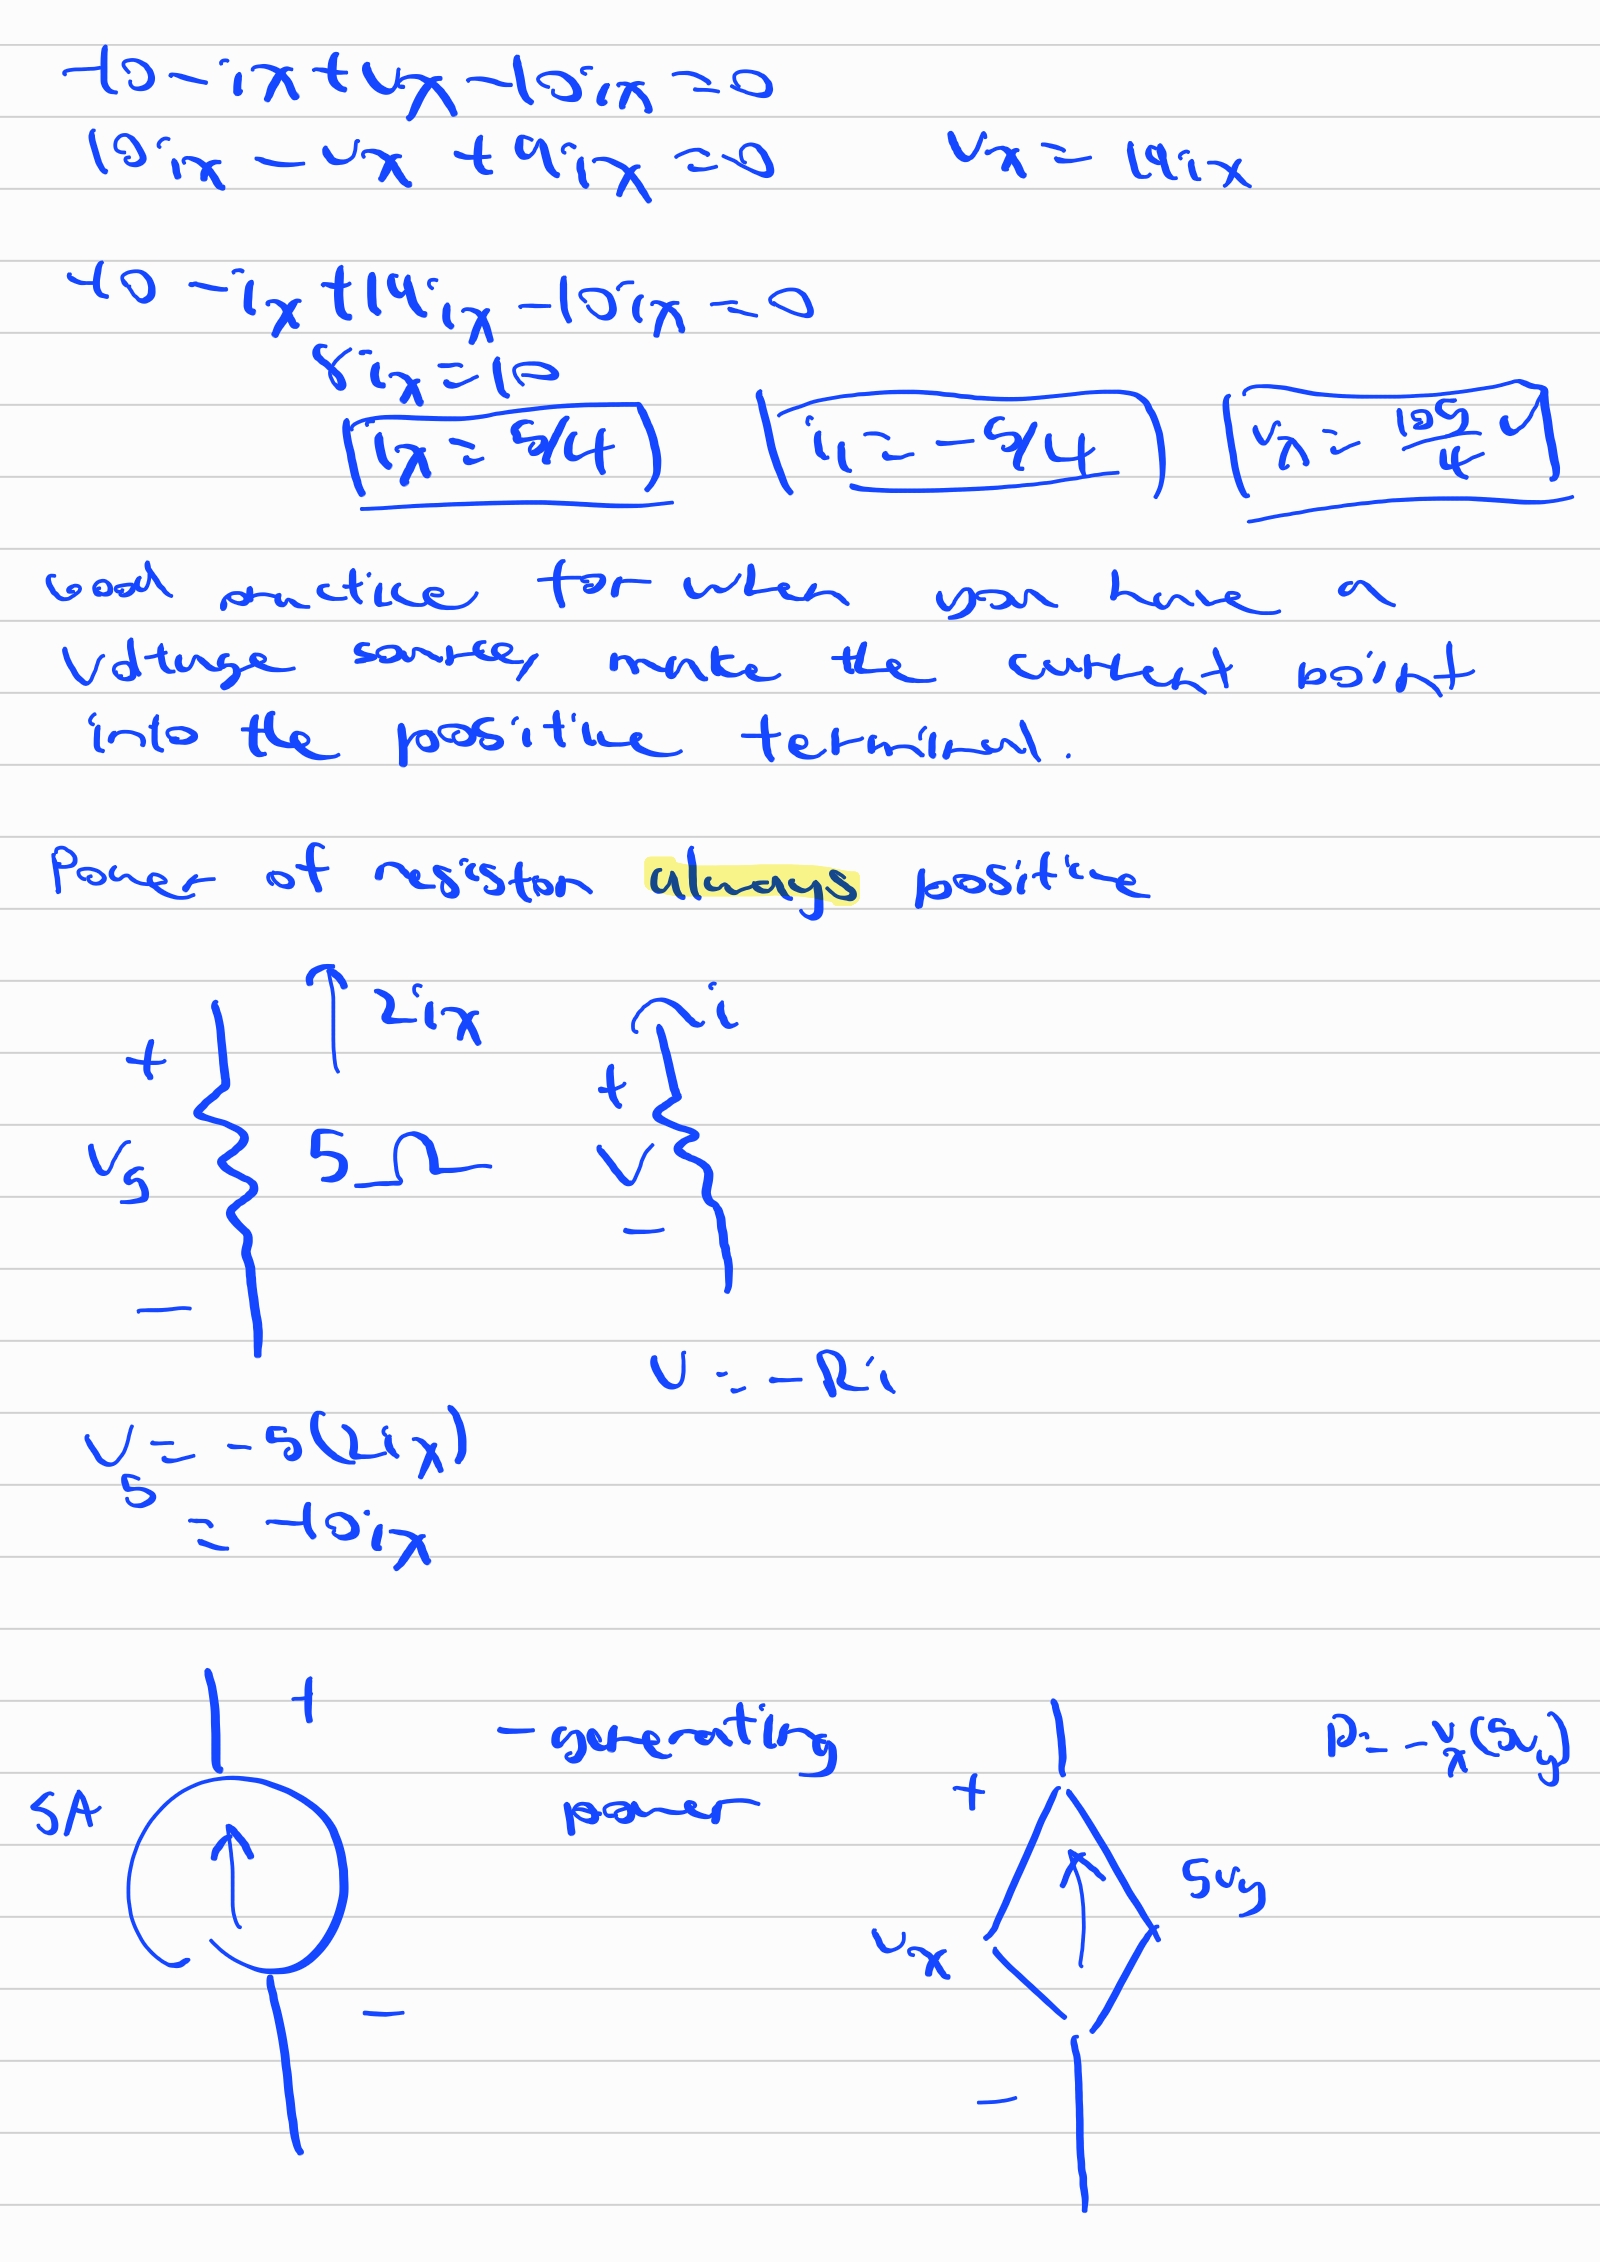 -10 - ix + vx - 10ix = 0
10ix - vx + 9ix = 0 vx = 19ix
-10 - ix + 19ix - 10ix = 0
8ix = 10
ix = 5/4 i1 = -5/4 vx = 105/4 v
Good practice for when you have a
voltage source, make the current point
into the positive terminal.
Power of resistor always positive
2ix i
+ +
v5 5Ω V
- -
V = -Ri
V5 = -5(2ix)
= -10ix
+ - generating P = -vx(5vy)
5A power +
5vy
vx
- -